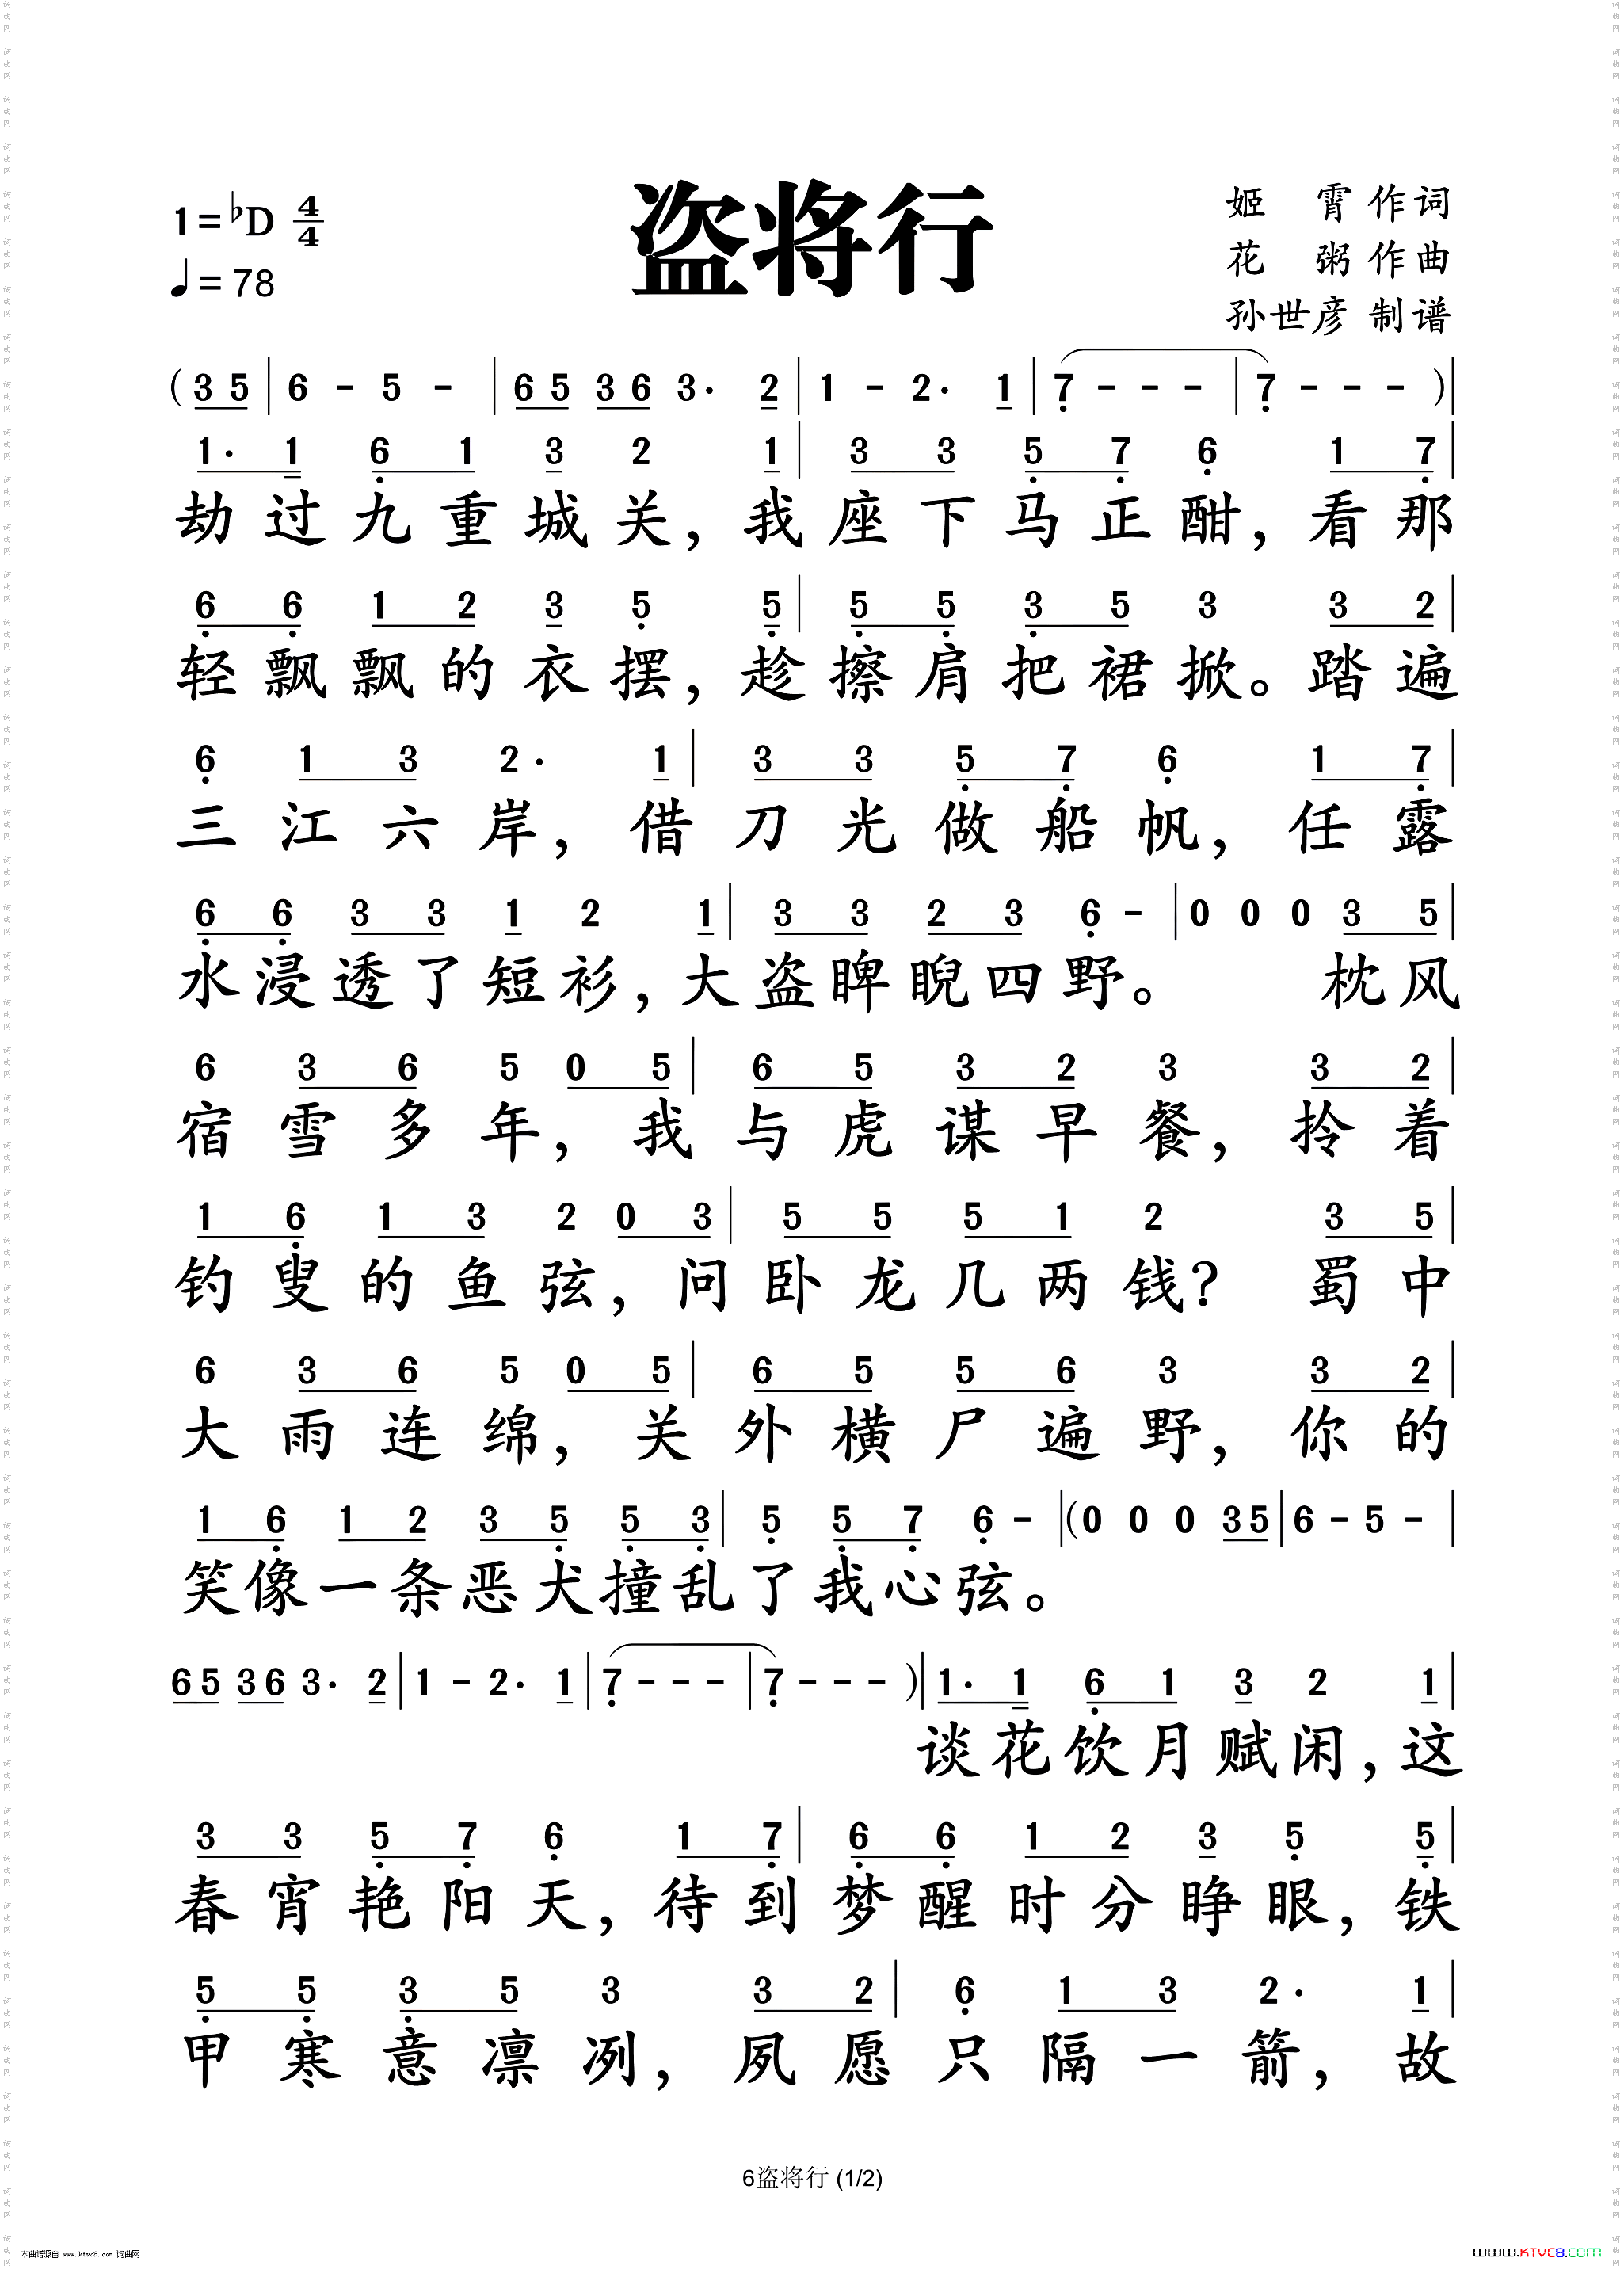 盗将行
1=♭D 4/4
♩=78
姬 霄 作词
花 粥 作曲
孙世彦 制谱
(3 5 | 6 - 5 - | 6 5 3 6 3· 2 | 1 - 2· 1 | 7̣ - - - | 7̣ - - - )|
1· 1 6̣ 1 3 2 1 | 3 3 5̣ 7̣ 6̣ 1 7̣ |
劫过九重城关，我座下马正酣，看那
6̣ 6̣ 1 2 3 5̣ 5̣ | 5̣ 5̣ 3̣ 5 3 3 2 |
轻飘飘的衣摆，趁擦肩把裙掀。踏遍
6̣ 1 3 2· 1 | 3 3 5̣ 7̣ 6̣ 1 7̣ |
三江六岸，借刀光做船帆，任露
6̣ 6̣ 3 3 1 2 1 | 3 3 2 3 6̣ - | 0 0 0 3 5 |
水浸透了短衫，大盗睥睨四野。 枕风
6 3 6 5 0 5 | 6 5 3 2 3 3 2 |
宿雪多年，我与虎谋早餐，拎着
1 6̣ 1 3 2 0 3 | 5 5 5 1 2 3 5 |
钓叟的鱼弦，问卧龙几两钱？ 蜀中
6 3 6 5 0 5 | 6 5 5 6 3 3 2 |
大雨连绵，关外横尸遍野，你的
1 6̣ 1 2 3 5̣ 5̣ 3̣ | 5̣ 5̣ 7̣ 6̣ - |(0 0 0 3 5 | 6 - 5 - |
笑像一条恶犬撞乱了我心弦。
6 5 3 6 3· 2 | 1 - 2· 1 | 7̣ - - - | 7̣ - - - )| 1· 1 6̣ 1 3 2 1 |
谈花饮月赋闲，这
3 3 5̣ 7̣ 6̣ 1 7̣ | 6̣ 6̣ 1 2 3 5̣ 5̣ |
春宵艳阳天，待到梦醒时分睁眼，铁
5̣ 5̣ 3̣ 5 3 3 2 | 6̣ 1 3 2· 1 |
甲寒意凛冽，夙愿只隔一箭，故
6盗将行 (1/2)
本曲谱源自 www.ktvc8.com 词曲网
www.KTVC8.com